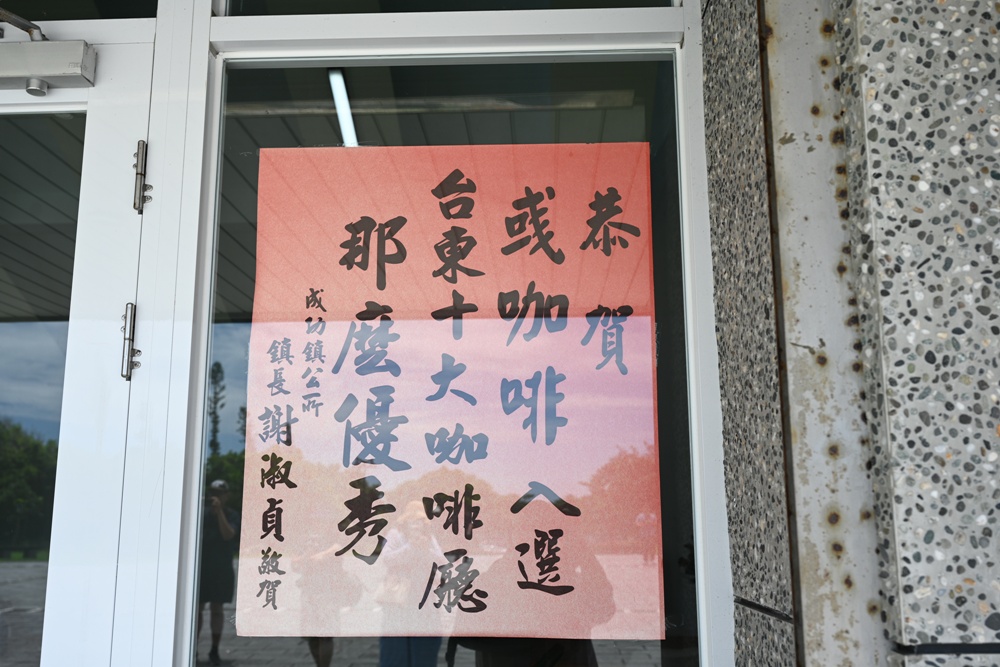 恭賀
彧咖啡入選
台東十大咖啡廳
那麼優秀
成功鎮公所
鎮長謝淑貞敬賀